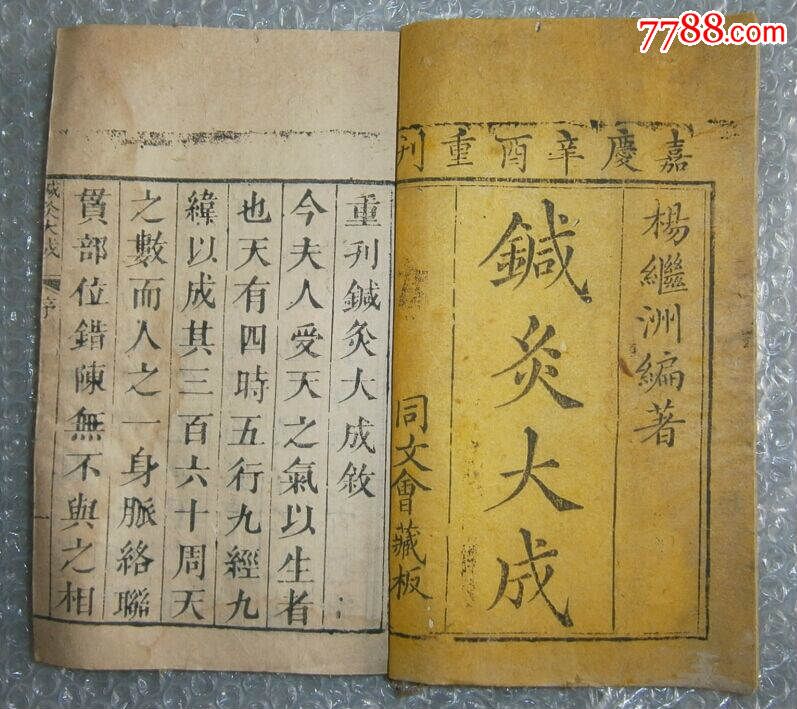 7788.com
嘉慶辛酉重刊
楊繼洲編著
鍼灸大成
同文會藏板
重刊鍼灸大成敘
今夫人受天之氣以生者
也天有四時五行九經九
緯以成其三百六十周天
之數而人之一身脈絡聯
貫部位錯陳無不與之相
鍼灸大成
序
一